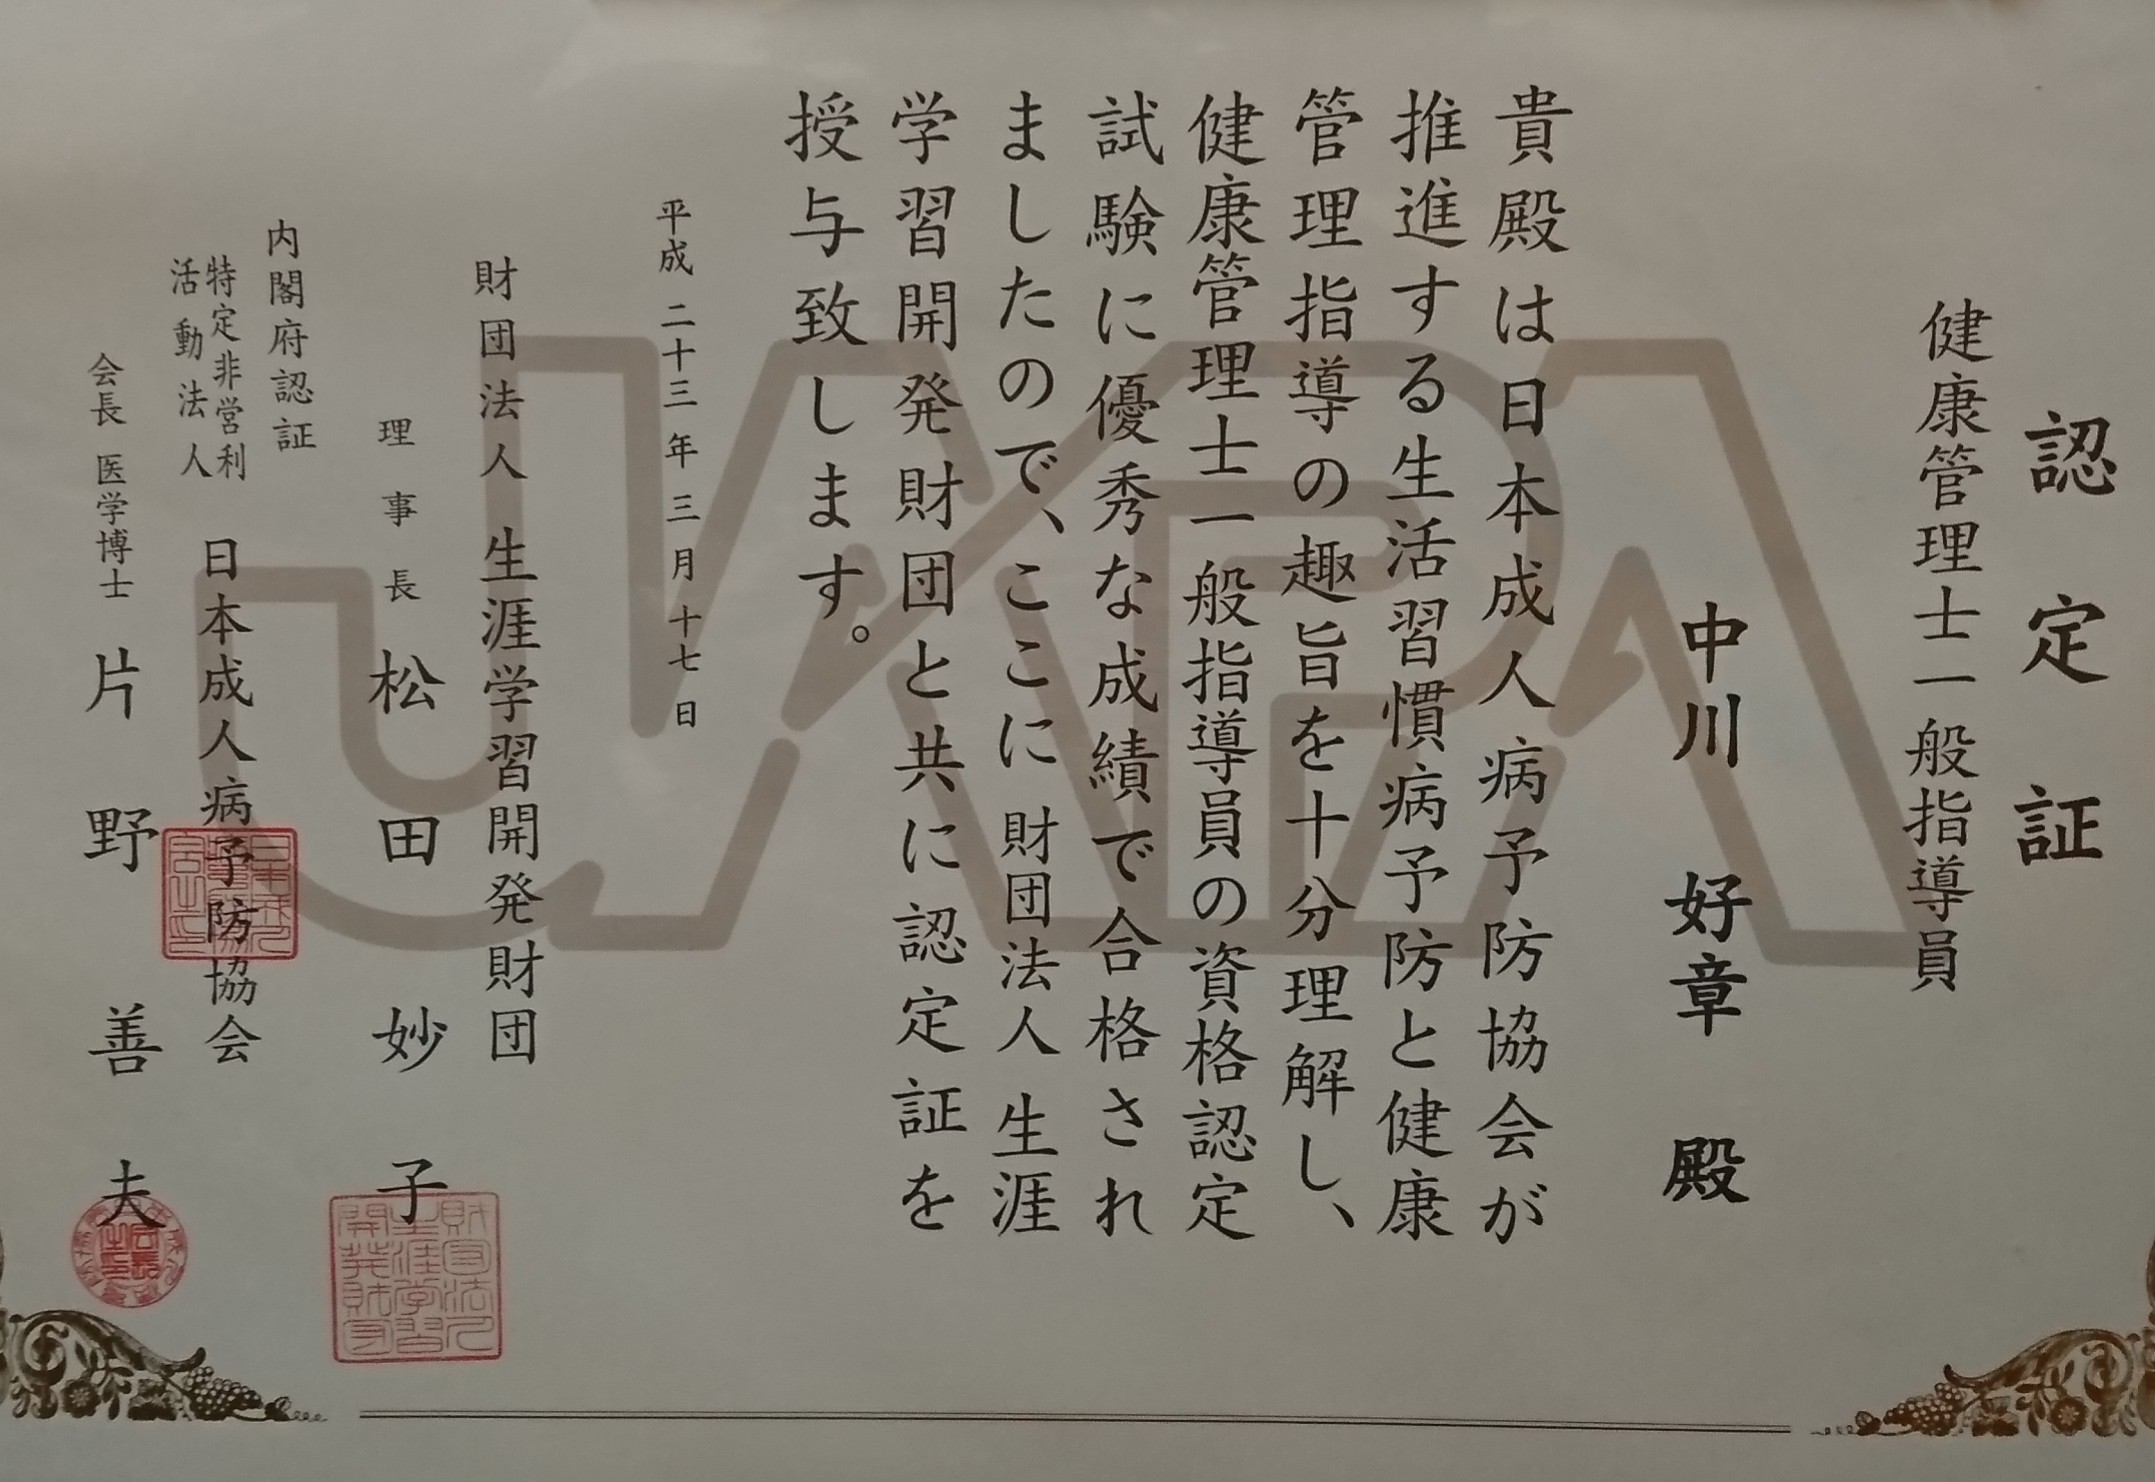 認定証
健康管理士一般指導員
中川 好章 殿
貴殿は日本成人病予防協会が
推進する生活習慣病予防と健康
管理指導の趣旨を十分理解し、
健康管理士一般指導員の資格認定
試験に優秀な成績で合格され
ましたので、ここに財団法人生涯
学習開発財団と共に認定証を
授与致します。
平成二十三年三月十七日
財団法人 生涯学習開発財団
理事長 松田妙子
内閣府認証
特定非営利
活動法人
日本成人病予防協会
会長 医学博士 片野善夫
JAPA